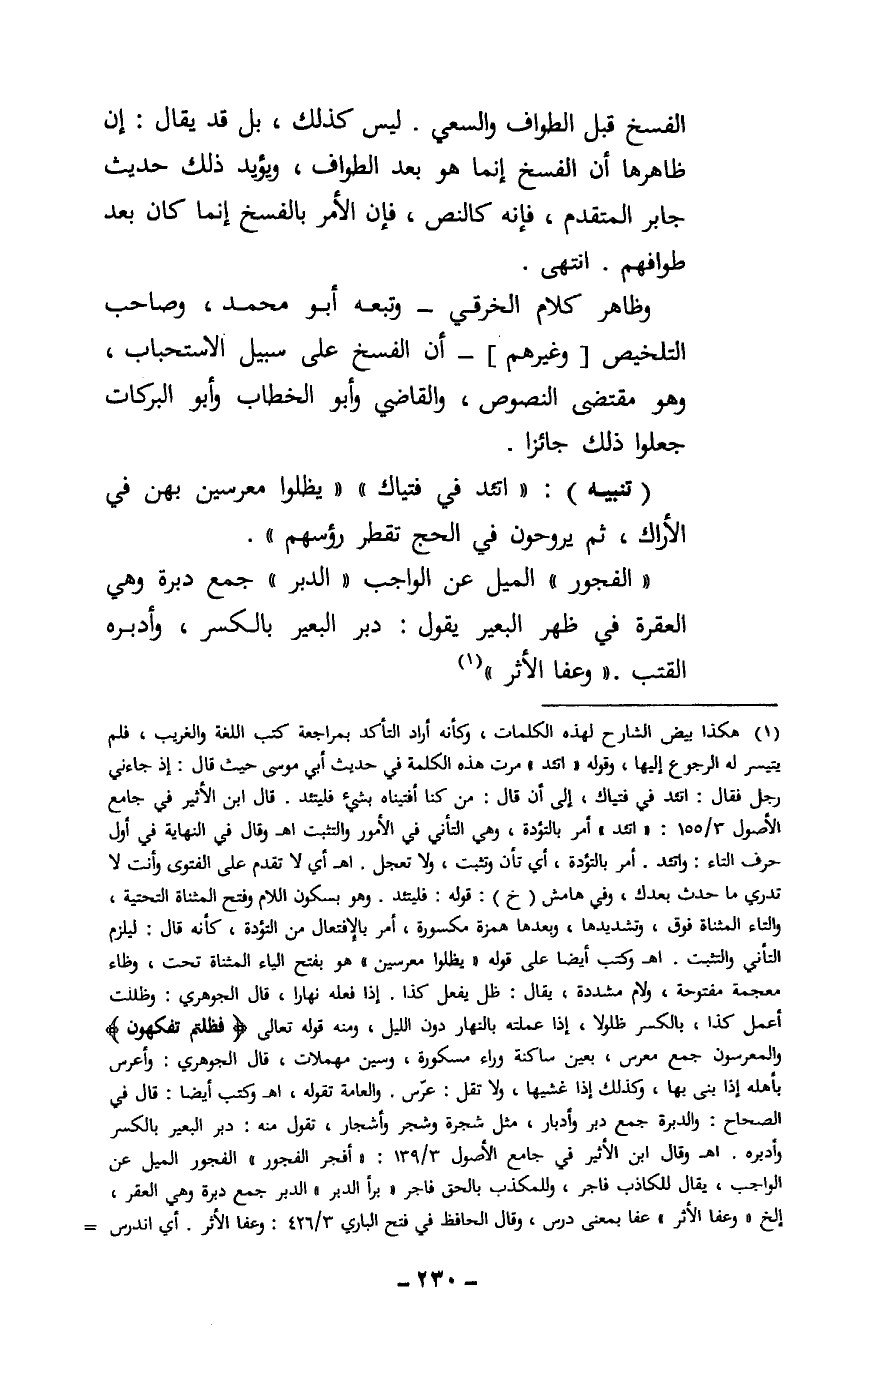 الفسخ قبل الطواف والسعي . ليس كذلك ، بل قد يقال : إن
ظاهرها أن الفسخ إنما هو بعد الطواف ، ويؤيد ذلك حديث
جابر المتقدم ، فإنه كالنص ، فإن الأمر بالفسخ إنما كان بعد
طوافهم . انتهى .
وظاهر كلام الخرقي – وتبعه أبو محمد ، وصاحب
التلخيص [ وغيرهم ] – أن الفسخ على سبيل الاستحباب ،
وهو مقتضى النصوص ، والقاضي وأبو الخطاب وأبو البركات
جعلوا ذلك جائزا .
( تنبيه ) : « اتئد في فتياك » « يظلوا معرسين بهن في
الأراك ، ثم يروحون في الحج تقطر رؤسهم » .
« الفجور » الميل عن الواجب « الدبر » جمع دبرة وهي
العقرة في ظهر البعير يقول : دبر البعير بالكسر ، وأدبره
القتب . « وعفا الأثر »(١)
(١) هكذا بيض الشارح لهذه الكلمات ، وكأنه أراد التأكد بمراجعة كتب اللغة والغريب ، فلم
يتيسر له الرجوع إليها ، وقوله « اتئد » مرت هذه الكلمة في حديث أبي موسى حيث قال : إذ جاءني
رجل فقال : اتئد في فتياك ، إلى أن قال : من كنا أفتيناه بشيء فليتئد . قال ابن الأثير في جامع
الأصول ١٥٥/٣ : « اتئد » أمر بالتؤدة ، وهي التأني في الأمور والتثبت اهـ وقال في النهاية في أول
حرف التاء : واتئد . أمر بالتؤدة ، أي تأن وتثبت ، ولا تعجل . اهـ أي لا تقدم على الفتوى وأنت لا
تدري ما حدث بعدك ، وفي هامش ( خ ) : قوله : فليتئد . وهو بسكون اللام وفتح المثناة التحتية ،
والتاء المثناة فوق ، وتشديدها ، وبعدها همزة مكسورة ، أمر بالإفتعال من التؤدة ، كأنه قال : ليلزم
التأني والتثبت . اهـ وكتب أيضا على قوله « يظلوا معرسين » هو بفتح الياء المثناة تحت ، وظاء
معجمة مفتوحة ، ولام مشددة ، يقال : ظل يفعل كذا . إذا فعله نهارا ، قال الجوهري : وظللت
أعمل كذا ، بالكسر ظلولا ، إذا عملته بالنهار دون الليل ، ومنه قوله تعالى ﴿ فظلتم تفكهون ﴾
والمعرسون جمع معرس ، بعين ساكنة وراء مسكورة ، وسين مهملات ، قال الجوهري : وأعرس
بأهله إذا بنى بها ، وكذلك إذا غشيها ، ولا تقل : عرّس . والعامة تقوله ، اهـ وكتب أيضا : قال في
الصحاح : والدبرة جمع دبر وأدبار ، مثل شجرة وشجر وأشجار ، تقول منه : دبر البعير بالكسر
وأدبره . اهـ وقال ابن الأثير في جامع الأصول ١٣٩/٣ : « أفجر الفجور » الفجور الميل عن
الواجب ، يقال للكاذب فاجر ، وللمكذب بالحق فاجر « برأ الدبر » الدبر جمع دبرة وهي العقر ،
إلخ « وعفا الأثر » عفا بمعنى درس ، وقال الحافظ في فتح الباري ٤٢٦/٣ : وعفا الأثر . أي اندرس =
– ٢٣٠ –